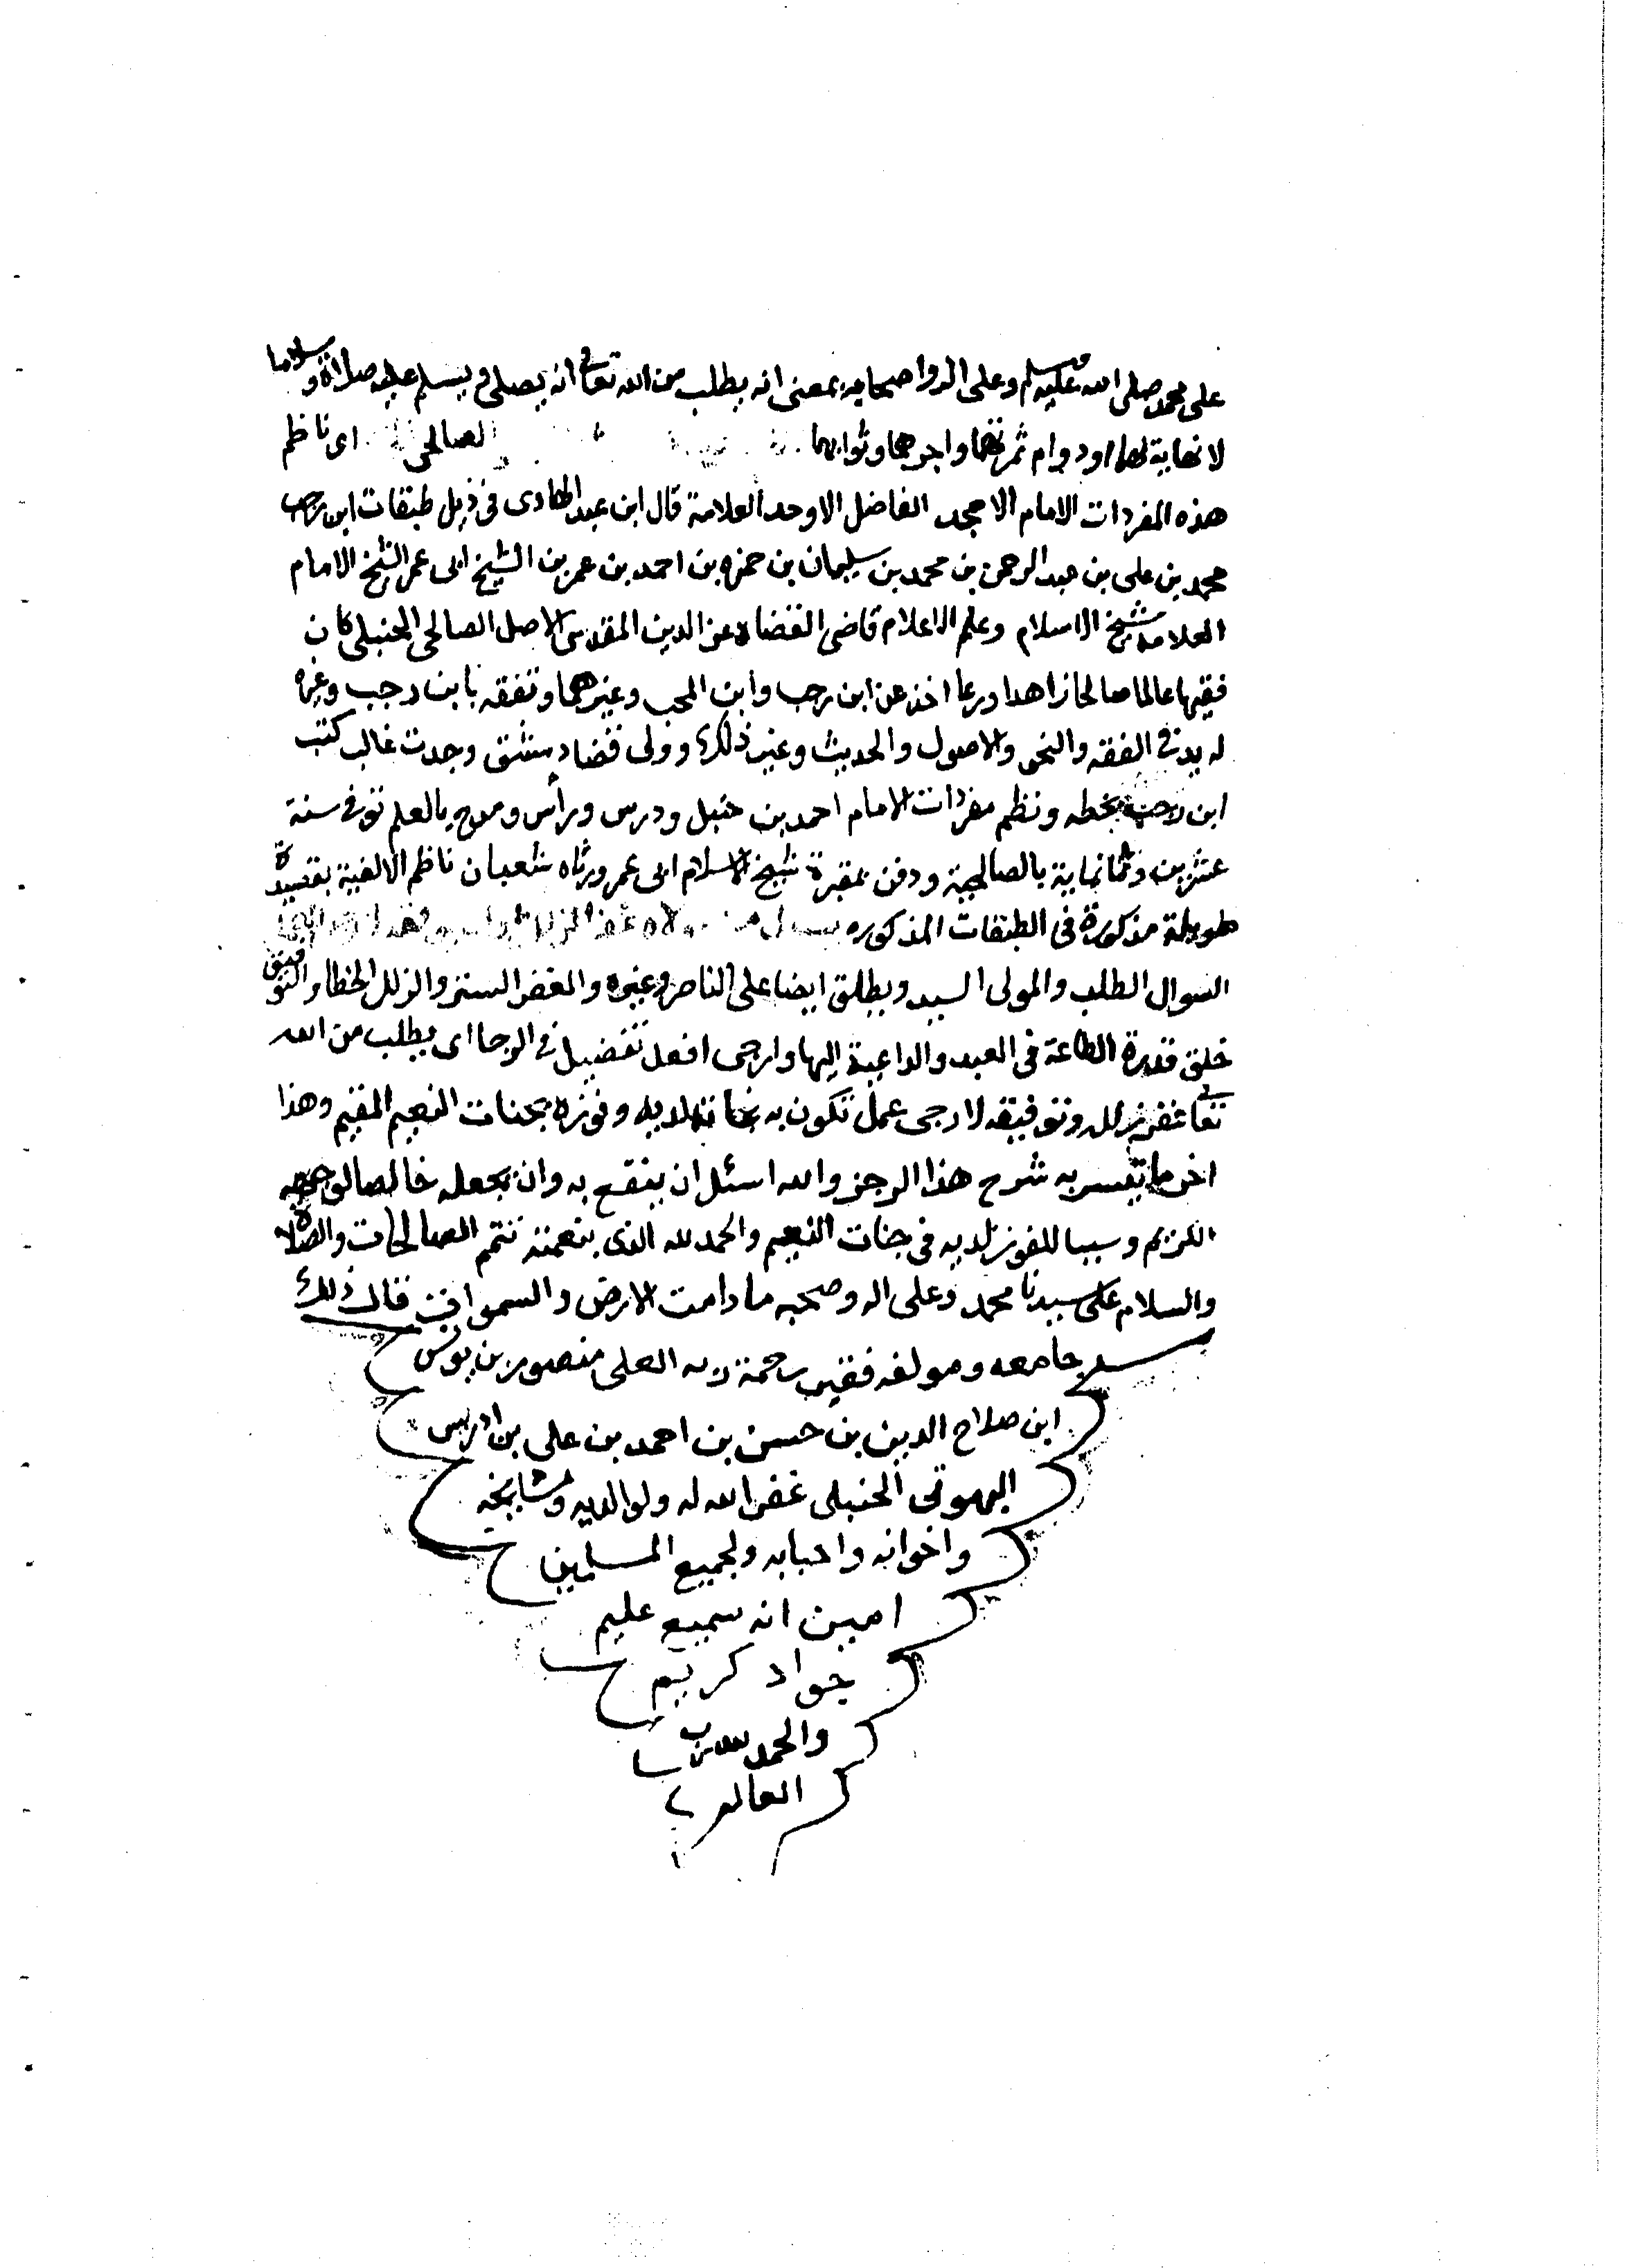 على محمد صلى الله عليه وسلم وعلى اله واصحابه بمعنى انه يطلب من الله تعالى انه يصلي ويسلم عليه صلاة وسلاما
لا نهاية لهما ودوام ثمرتهما واجرهما وثوابهما الصالحي اى ناظم
هذه المفردات الامام الامجد الفاضل الاوحد العلامة قال ابن عبد الهادى فى ذيل طبقات ابن رجب
محمد بن على بن عبد الرحمن بن محمد بن سليمان بن حمزه بن احمد بن عمر بن الشيخ ابى عمر الشيخ الامام
العلامة شيخ الاسلام وعلم الاعلام قاضى القضاه عز الدين المقدسى الاصل الصالحى الحنبلى كان
فقيها عالما صالحا زاهدا ورعا اخذ عن ابن رجب وابن المحب وغيرهما وتفقه بابن رجب وغيره
له يد فى الفقه والنحو والاصول والحديث وغير ذلك وولى قضا دمشق وجدت غالب كتب
ابن رجب بخطه ونظم مفردات الامام احمد بن حنبل ودرس ورأس ومدح بالعلم توفى سنة
عشرين وثمانماية بالصالحية ودفن بمقبرة شيخ الاسلام ابى عمر ورثاه شعبان ناظم الالفية بقصيدة
طويلة مذكورة فى الطبقات المذكوره
السوال الطلب والمولى السيد ويطلق ايضا على الناصر وغيره والغفر الستر والزلل الخطا والتوفيق
خلق قدرة الطاعة فى العبد والداعية اليها وارجى افعل تفضيل فى الرجا اى يطلب من الله
تعالى غفر زلله وتوفيقه لارجى عمل تكون به نجاته لديه وفوزه بجنات النعيم المقيم وهذا
اخر ما تيسر به شرح هذا الرجز والله اسئل ان ينفع به وان يجعله خالصا لوجهه
الكريم وسببا للفوز لديه فى جنات النعيم والحمد لله الذى بنعمته تتم الصالحات والصلاة
والسلام على سيدنا محمد وعلى اله وصحبه ما دامت الارض والسموات قال ذلك
جامعه ومولفه فقير رحمة ربه العلى منصور بن يونس
ابن صلاح الدين بن حسن بن احمد بن على بن ادريس
البهوتى الحنبلى غفر الله له ولوالديه ومشايخه
واخوانه واحبابه ولجميع المسلمين
امين انه سميع عليم
جواد كريم
والحمد لله رب
العالمين